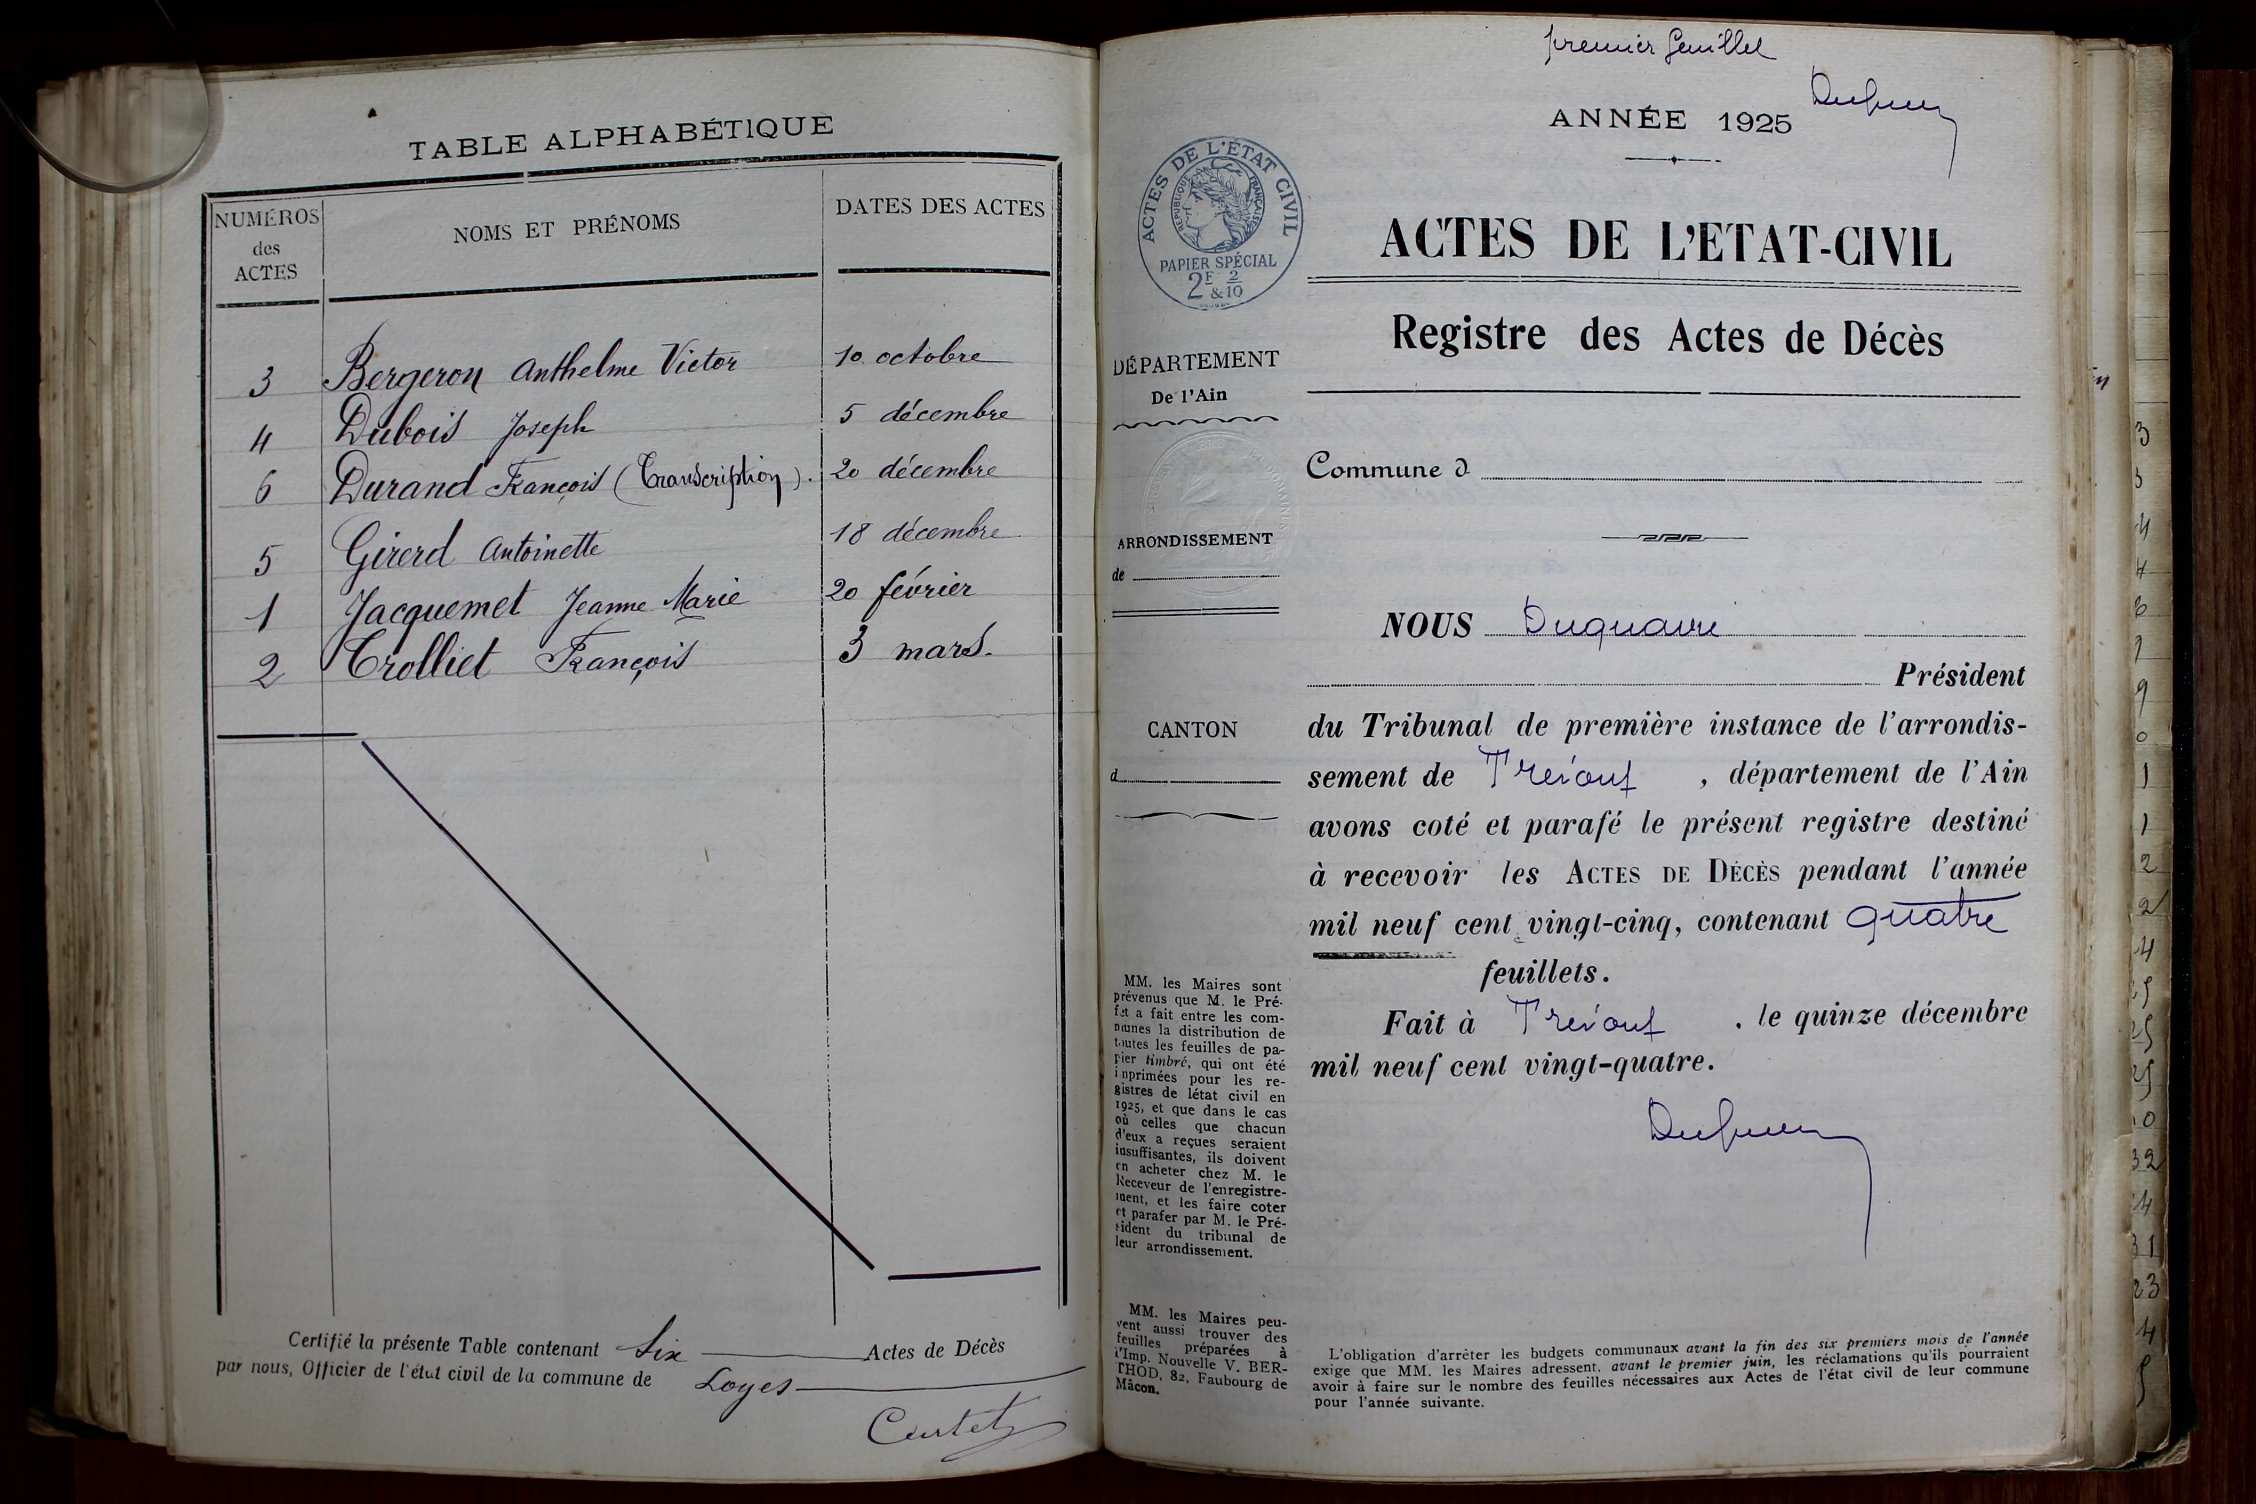 TABLE ALPHABÉTIQUE
NUMÉROS
des
ACTES
NOMS ET PRÉNOMS
DATES DES ACTES
3 Bergeron Anthelme Victor 10 octobre
4 Dubois Joseph 5 décembre
6 Durand François (Transcription). 20 décembre
5 Girerd Antoinette 18 décembre
1 Jacquemet Jeanne Marie 20 février
2 Trolliet François 3 mars.
Certifié la présente Table contenant Six Actes de Décès
par nous, Officier de l'état civil de la commune de Loyes
premier feuillet
ANNÉE 1925
ACTES DE L'ÉTAT CIVIL
RÉPUBLIQUE FRANÇAISE
PAPIER SPÉCIAL
2F & 2/10
ACTES DE L'ETAT-CIVIL
Registre des Actes de Décès
DÉPARTEMENT
De l'Ain
ARRONDISSEMENT
de
CANTON
d
MM. les Maires sont
prévenus que M. le Pré-
fet a fait entre les com-
munes la distribution de
toutes les feuilles de pa-
pier timbré, qui ont été
imprimées pour les re-
gistres de létat civil en
1925, et que dans le cas
où celles que chacun
d'eux a reçues seraient
insuffisantes, ils doivent
en acheter chez M. le
Receveur de l'enregistre-
ment, et les faire coter
et parafer par M. le Pré-
sident du tribunal de
leur arrondissement.
MM. les Maires peu-
vent aussi trouver des
feuilles préparées à
l'Imp. Nouvelle V. BER-
THOD, 82, Faubourg de
Mâcon.
Commune d
NOUS Duquaire
Président
du Tribunal de première instance de l'arrondis-
sement de Trévoux, département de l'Ain
avons coté et parafé le présent registre destiné
à recevoir les ACTES DE DÉCÈS pendant l'année
mil neuf cent vingt-cinq, contenant quatre
feuillets.
Fait à Trévoux, le quinze décembre
mil neuf cent vingt-quatre.
L'obligation d'arrêter les budgets communaux avant la fin des six premiers mois de l'année
exige que MM. les Maires adressent, avant le premier juin, les réclamations qu'ils pourraient
avoir à faire sur le nombre des feuilles nécessaires aux Actes de l'état civil de leur commune
pour l'année suivante.